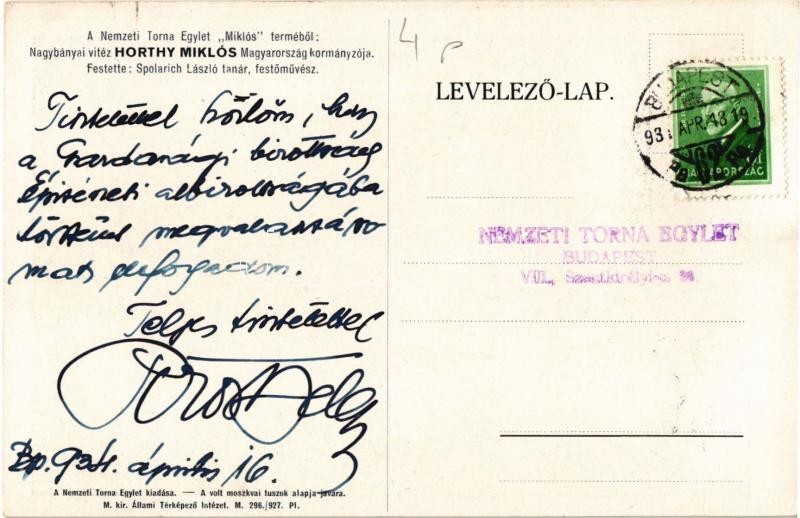 A Nemzeti Torna Egylet „Miklós” terméből:
Nagybányai vitéz HORTHY MIKLÓS Magyarország kormányzója.
Festette: Spolarich László tanár, festőművész.
Tisztelettel közlöm, hogy
a Gazdasági bizottság
Építészeti albizottságába
történt megválasztáso
mat elfogadom.
Teljes tisztelettel
Bp. 934. április 16.
A Nemzeti Torna Egylet kiadása. — A volt moszkvai tuszok alapja javára.
M. kir. Állami Térképező Intézet. M. 296./927. Pl.
4
LEVELEZŐ-LAP.
BUDAPEST
APR. 18 19
MAGYARORSZÁG
NEMZETI TORNA EGYLET
BUDAPEST
VIII, Szentkirályi-u. 26.